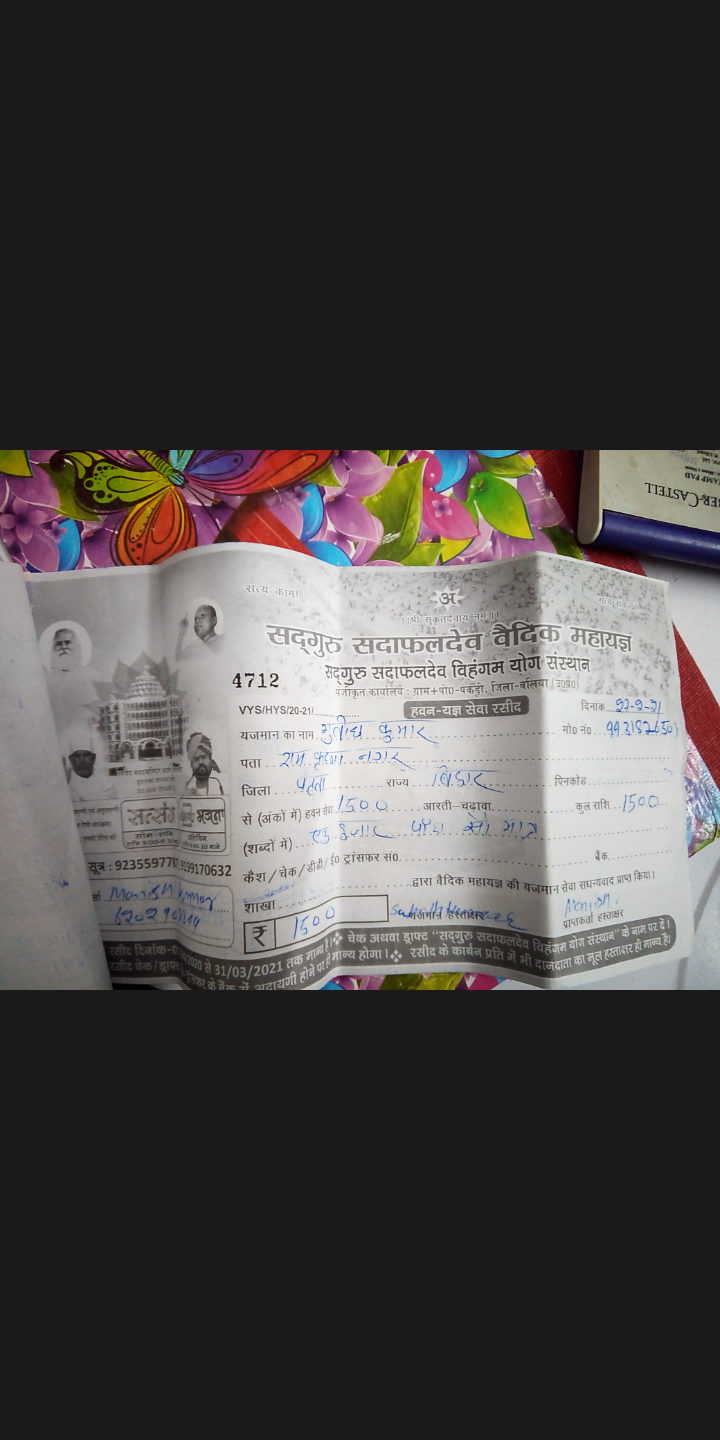 BER-CASTELL
AMP PAD
सत्य काम।
अ
।श्री सुकृतदेवाय नमः।
सद्गुरु सदाफलदेव वैदिक महायज्ञ
सद्गुरु सदाफलदेव विहंगम योग संस्थान
4712
पंजीकृत कार्यालय : ग्राम+पो०-पकड़ी, जिला-बलिया (उ०प्र०)
VYS/HYS/20-21/
हवन-यज्ञ सेवा रसीद
दिनांक
यजमान का नाम कुमार मो० नं०
पता राम कृष्णा नगर
जिला पटना राज्य बिहार पिनकोड
से (अंकों में) हवन सेवा 1500 आरती-चढ़ावा कुल राशि 1500
(शब्दों में) एक हजार पाँच सौ मात्र
कैश/चेक/डीडी/ई० ट्रांसफर सं० बैंक
द्वारा वैदिक महायज्ञ की यजमान सेवा सधन्यवाद प्राप्त किया।
शाखा
₹ 1500
यजमान हस्ताक्षर
Manish
प्राप्तकर्ता हस्ताक्षर
सत्संग भजन
सोम-शनि
सूत्र : 9235597787 9599170632
Manish Kumar
रसीद दिनांक 2020 से 31/03/2021 तक मान्य है। चेक अथवा ड्राफ्ट "सद्गुरु सदाफलदेव विहंगम योग संस्थान" के नाम पर दें।
रसीद चेक/ड्राफ्ट के बैंक में अदायगी होने पर ही मान्य होगा। रसीद के कार्बन प्रति में भी दानदाता का मूल हस्ताक्षर ही मान्य है।